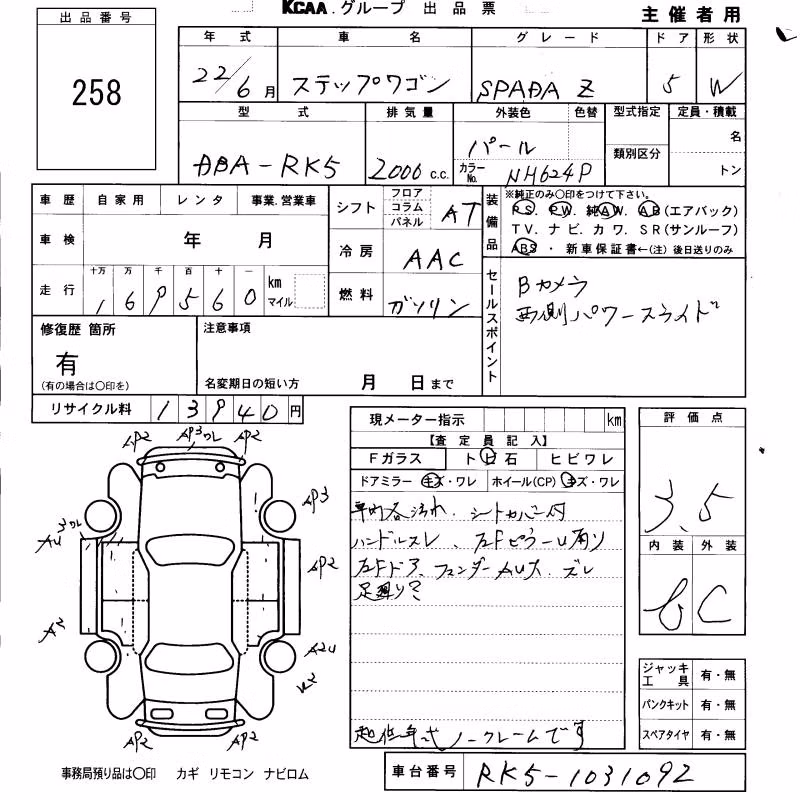 KCAA.グループ 出品票
主催者用
出品番号
258
年式 車名 グレード ドア 形状
22/6月 ステップワゴン SPADA Z 5 W
型式 排気量 外装色 色替 型式指定 定員・積載
DBA-RK5 2000 c.c. パール 名
類別区分
カラーNo. NH624P トン
車歴 自家用 レンタ 事業.営業車
シフト フロア コラム パネル AT
装備品 ※純正のみ○印をつけて下さい。
PS. PW. 純AW. AB(エアバック)
TV. ナビ. カワ. SR(サンルーフ)
ABS ・ 新車保証書←(注)後日送りのみ
車検 年 月
冷房 AAC
走行 十万 万 千 百 十 一 km マイル
169560
燃料 ガソリン
セールスポイント
Bカメラ
両側パワースライド
修復歴 箇所
有
(有の場合は○印を)
注意事項
名変期日の短い方 月 日まで
リサイクル料 13940円
現メーター指示 km
【査定員記入】
Fガラス ト㋪石 ヒビワレ
ドアミラー キズ・ワレ ホイール(CP) キズ・ワレ
車内各汚れ、シートカバー付
ハンドルスレ、左Fピラーu有り
左Fドア、フェンダーAU大、ズレ
足廻り?
超低年式ノークレームです
評価点
3.5
内装 外装
C
ジャッキ工具 有・無
パンクキット 有・無
スペアタイヤ 有・無
AP2 AP3ワレ AP2
AP3
AU3ワレ
AP2
A2
A2U
AP2 AP2
事務局預り品は○印 カギ リモコン ナビロム
車台番号 RK5-1031092